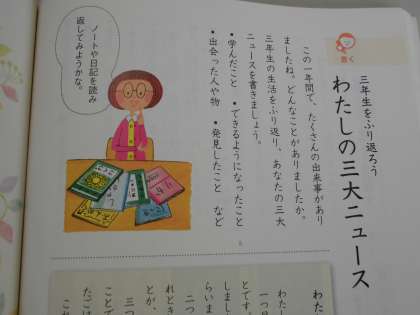 書く
三年生をふり返ろう
わたしの三大ニュース
この一年間で、たくさんの出来事があり
ましたね。どんなことがありましたか。
三年生の生活をふり返り、あなたの三大
ニュースを書きましょう。
・学んだこと ・できるようになったこと
・出会った人や物 ・発見したこと など
ノートや日記を読み
返してみようかな。
わた
わたし
一つ目
とです。
しまし
らいま
二つ
れとき
とが、
三つ
ことで
たこは
これ